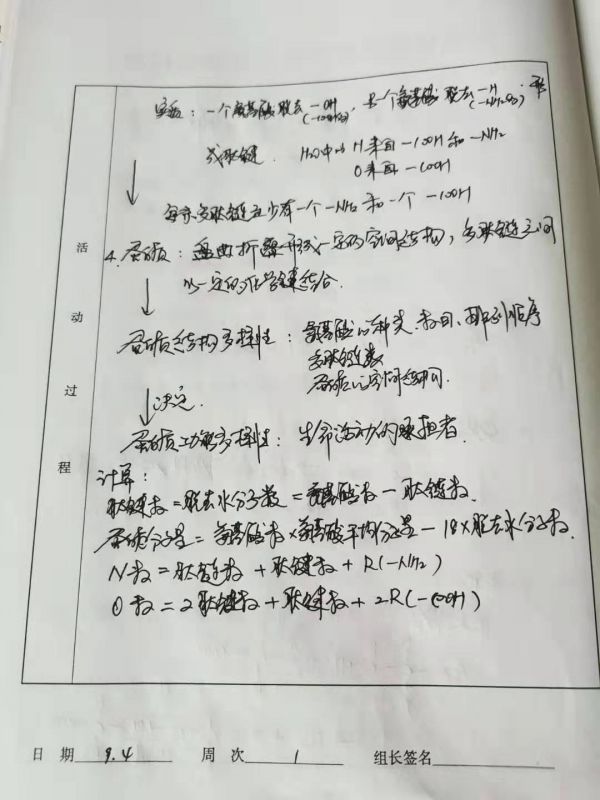 实质：一个氨基酸脱去—OH(—COOH), 另一个氨基酸脱去—H(—NH₂), 形
成肽键. H₂O中的H来自—COOH和—NH₂
O来自—COOH
每条多肽链至少有一个—NH₂和一个—COOH
4.蛋白质：盘曲折叠形成一定的空间结构，多肽链之间
以一定的化学键结合.
蛋白质结构多样性：氨基酸的种类、数目、排列顺序
多肽链数
蛋白质的空间结构.
决定.
蛋白质功能多样性：生命活动的承担者.
计算：
肽键数=脱去水分子数=氨基酸数-肽链数.
蛋白质分子量=氨基酸数×氨基酸平均分子量-18×脱去水分子数.
N数=肽链数+肽键数+R(-NH₂)
O数=2肽链数+肽键数+2R(-COOH)
活动过程
日 期 9.4 周 次 1 组长签名